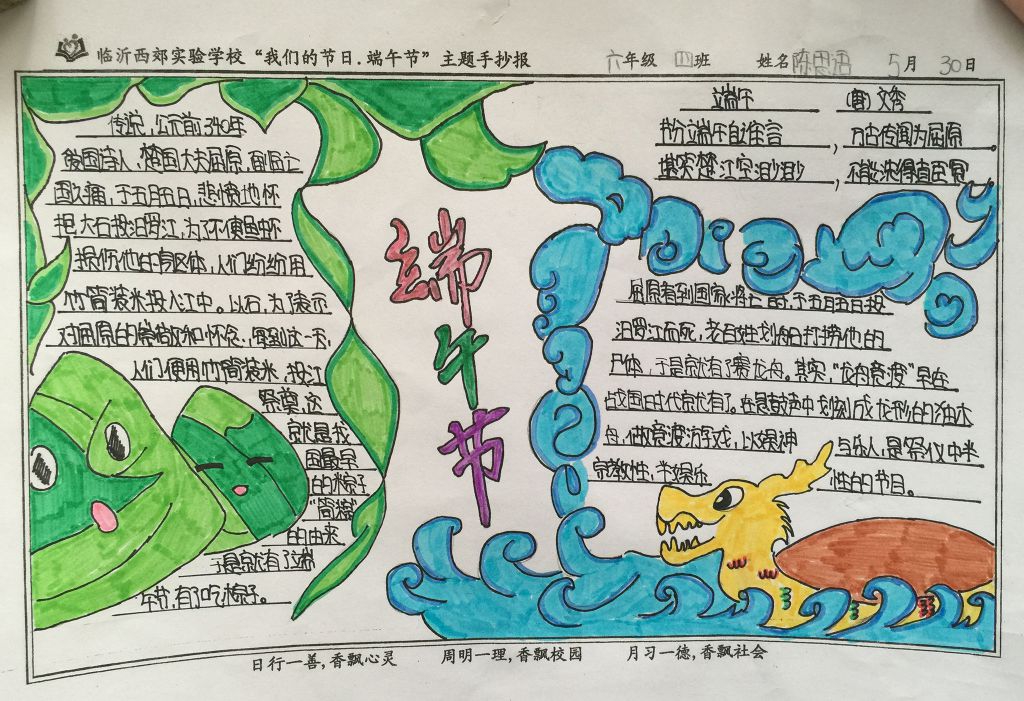 临沂西郊实验学校“我们的节日.端午节”主题手抄报 六年级 四班 姓名陈思语 5月 30日
传说，公元前340年
爱国诗人，楚国大夫屈原，面临亡
国之痛，于五月五日，悲愤地怀
抱大石投汨罗江，为了不使鱼虾
损伤他的身区体，人们纷纷用
竹筒装米投入江中。以后，为了表示
对屈原的崇敬和怀念，每到这一天，
人们便用竹筒装米，投江
祭奠，这
就是我
国最早
的粽子
“筒粽”
的由来
于是就有了端
午节，有了吃粽子。
端午节
端午 (唐) 文秀
节分端午自谁言，万古传闻为屈原。
堪笑楚江空渺渺，不能洗得直臣冤
屈原看到国家将亡的，于五月五日投
汨罗江而死，老百姓划船打捞他的
尸体，于是就有了赛龙舟。其实，“龙舟竞渡”早在
战国时代就有了。在急鼓声中划刻成龙形的独木
舟，做竞渡游戏，以娱神 与乐人，是祭仪中半
宗教性，半娱乐 性的节目。
日行一善，香飘心灵 周明一理，香飘校园 月习一德，香飘社会